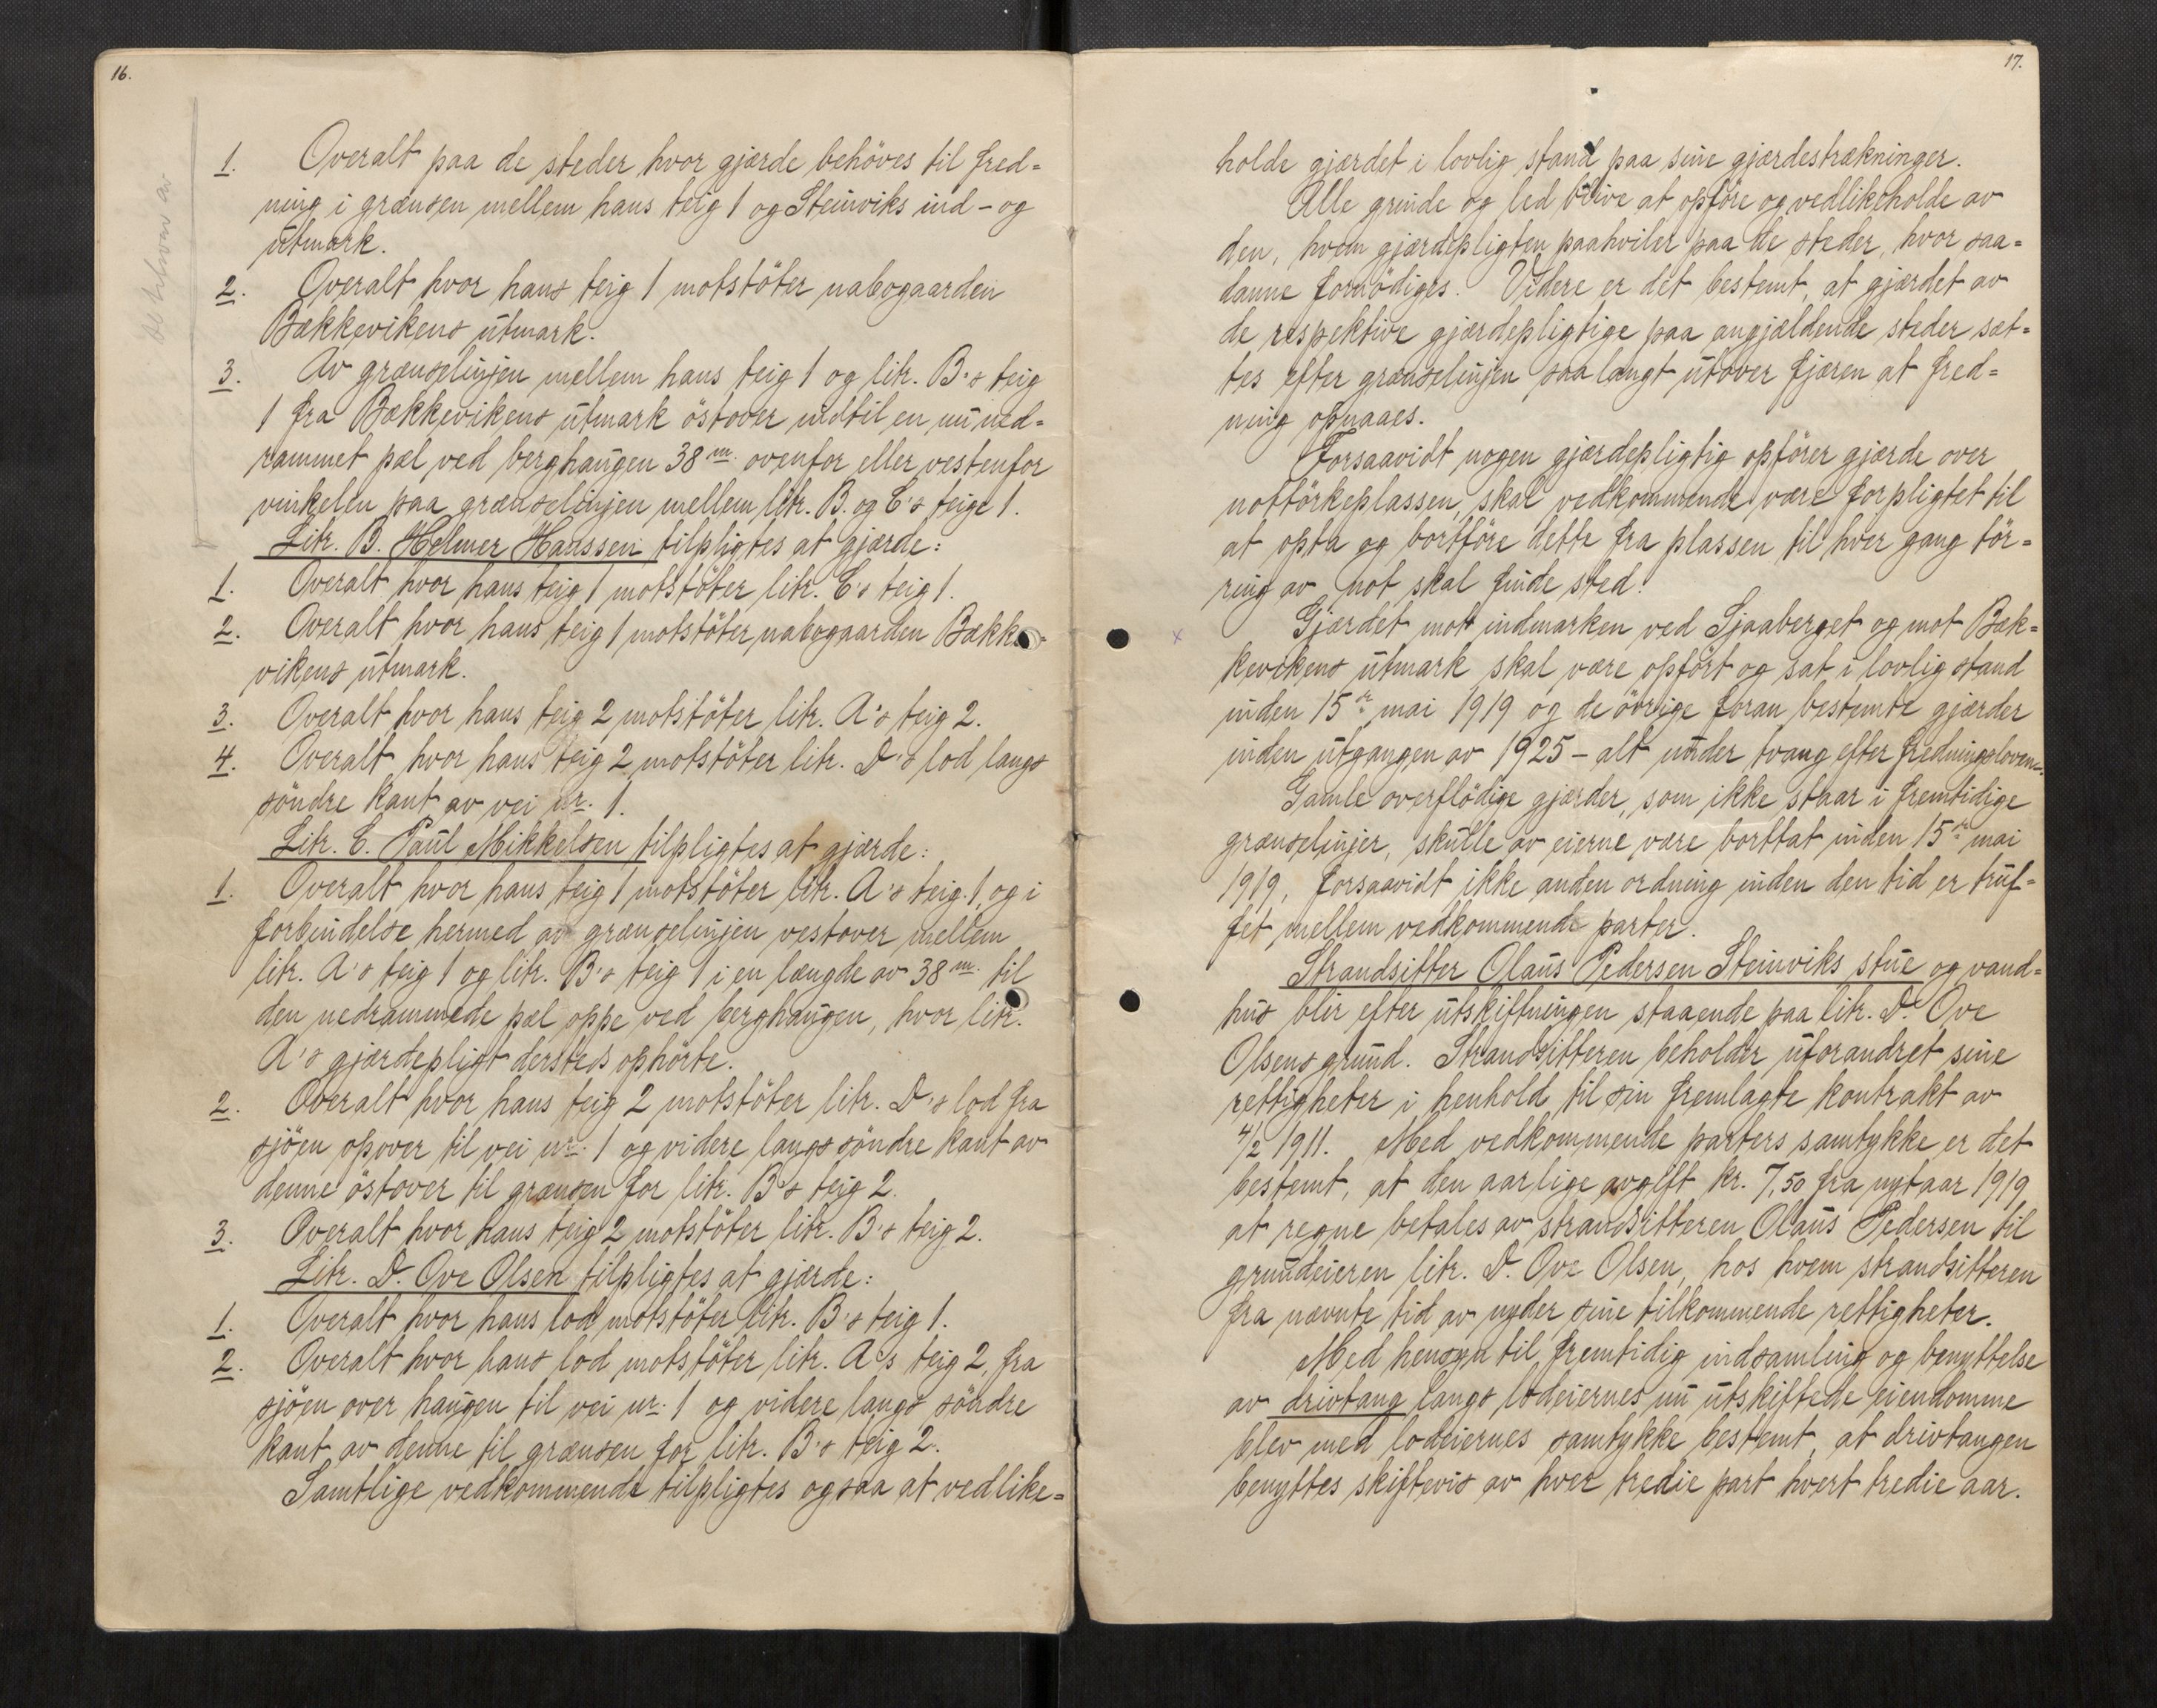 16.
1. Overalt paa de steder hvor gjærde behöves til fred=
ning i grænsen mellem hans teig 1 og Steinviks ind- og
utmark.
2. Overalt hvor hans teig 1 motstöter nabogaarden
Bækkevikens utmark.
3. Av grænselinjen mellem hans teig 1 og litr. B's teig
1 fra Bækkevikens utmark östover indtil en nu ned=
rammet pæl ved berghaugen 38 m. ovenfor eller vestenfor
vinkelen paa grænselinjen mellem litr. B. og C's teige 1.
Litr. B. Helmer Hanssen tilpligtes at gjærde:
1. Overalt hvor hans teig 1 motstöter litr. C's teig 1.
2. Overalt hvor hans teig 1 motstöter nabogaarden Bække=
vikens utmark.
3. Overalt hvor hans teig 2 motstöter litr. A's teig 2.
4. Overalt hvor hans teig 2 motstöter litr. D's lod langs
söndre kant av vei nr. 1.
Litr. C. Paul Mikkelsen tilpligtes at gjærde:
1. Overalt hvor hans teig 1 motstöter litr. A's teig 1, og i
forbindelse hermed av grænselinjen vestover mellem
litr. A's teig 1 og litr. B's teig 1 i en længde av 38 m. til
den nedrammede pæl oppe ved berghaugen, hvor litr.
A's gjærdepligt dersteds ophörte.
2. Overalt hvor hans teig 2 motstöter litr. D's lod fra
sjöen opover til vei nr. 1 og videre langs söndre kant av
denne östover til grænsen for litr. B's teig 2.
3. Overalt hvor hans teig 2 motstöter litr. B's teig 2.
Litr. D. Ove Olsen tilpligtes at gjærde:
1. Overalt hvor hans lod motstöter litr. B's teig 1.
2. Overalt hvor hans lod motstöter litr. A's teig 2, fra
sjöen over haugen til vei nr. 1 og videre langs söndre
kant av denne til grænsen for litr. B's teig 2.
Samtlige vedkommende tilpligtes ogsaa at vedlike=
17.
holde gjærdet i lovlig stand paa sine gjærdestrækninger.
Alle grinde og led blive at opföre og vedlikeholde av
den, hvem gjærdepligten paahviler paa de steder, hvor saa=
danne fornödiges. Videre er det bestemt, at gjærdet av
de respektive gjærdepligtige paa angjældende steder sæt=
tes efter grænselinjen saa langt utover fjæren at fred=
ning opnaaes.
Forsaavidt nogen gjærdepligtig opförer gjærde over
nottörkeplassen, skal vedkommende være forpligtet til
at opta og bortföre dette fra plassen til hver gang tör=
ring av not skal finde sted.
Gjærdet mot indmarken ved Sjaaberget og mot Bæk=
kevikens utmark skal være opfört og sat i lovlig stand
inden 15de mai 1919 og de övrige foran bestemte gjærder
inden utgangen av 1925 - alt under tvang efter fredningsloven.
Gamle overflödige gjærder, som ikke staar i fremtidige
grænselinjer, skulle av eierne være borttat inden 15de mai
1919, forsaavidt ikke anden ordning inden den tid er truf=
fet mellem vedkommende parter.
Strandsitter Olaus Pedersen Steinviks stue og vand=
hus blir efter utskiftningen staaende paa litr. D. Ove
Olsens grund. Strandsitteren beholder uforandret sine
rettigheter i henhold til sin fremlagte kontrakt av
4/2 1911. Med vedkommende parters samtykke er det
bestemt, at den aarlige avgift kr. 7,50 fra nytaar 1919
at regne betales av strandsitteren Olaus Pedersen til
grundeieren litr. D. Ove Olsen, hos hvem strandsitteren
fra nævnte tid av nyder sine tilkommende rettigheter.
Med hensyn til fremtidig indsamling og benyttelse
av drivtang langs lodeiernes nu utskiftede eiendomme
blev med lodeiernes samtykke bestemt, at drivtangen
benyttes skiftevis av hver tredie part hvert tredie aar.